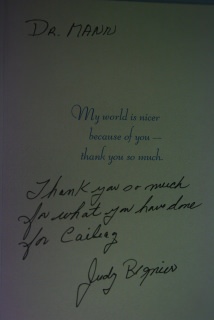 DR. MANN
My world is nicer
because of you —
thank you so much.
Thank you so much
for what you have done
for
Judy